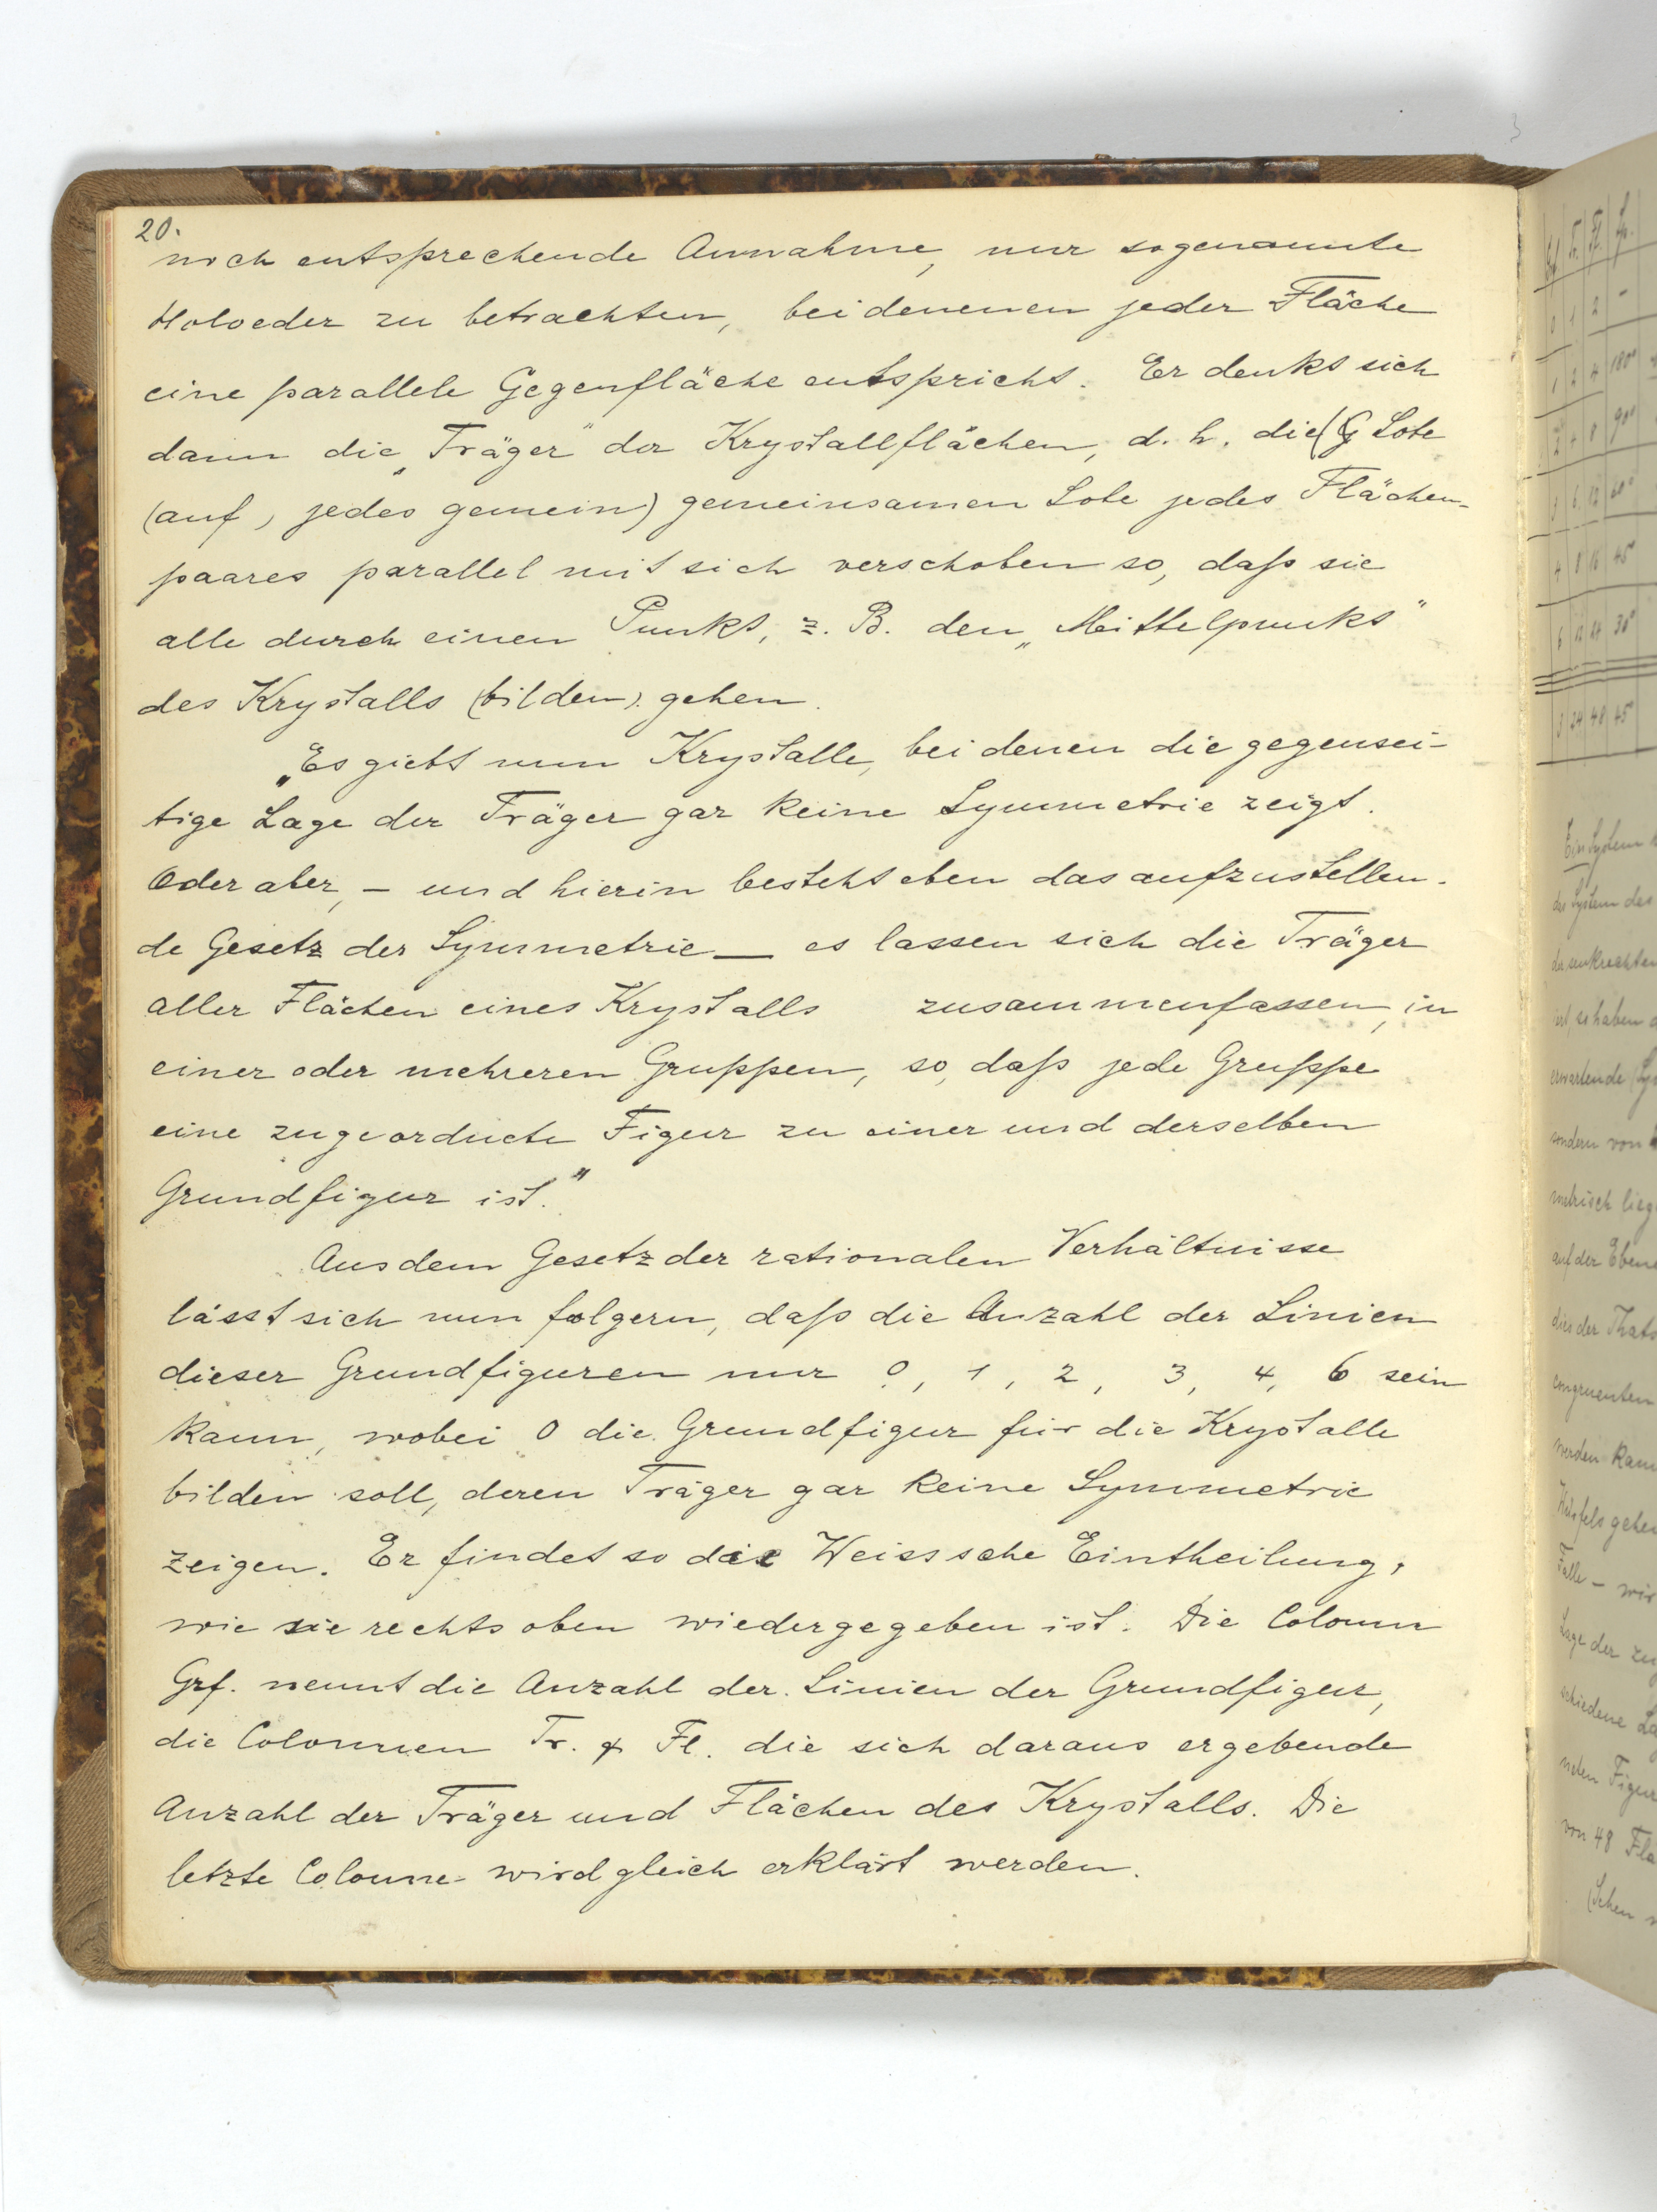 20.
noch entsprechende Annahme, nur sogenannte
Holoeder zu betrachten, bei denenen jeder Fläche
eine parallele Gegenfläche entspricht. Er denkt sich
dann die „Träger“ der Krystallflächen, d. h. die (G Lote
(auf, jedes gemein) gemeinsamen Lote jedes Flächen-
paares parallel mit sich verschoben so, daſs sie
alle durch einen Punkt, z. B. den „Mittelpunkt“
des Krystalls (bilden). gehen.
„Es giebt nun Krystalle, bei denen die gegensei-
tige Lage der Träger gar keine Symmetrie zeigt.
Oder aber, – und hierin besteht eben das aufzustellen-
de Gesetz der Symmetrie – es lassen sich die Träger
aller Flächen eines Krystalls zusammenfassen, in
einer oder mehreren Gruppen, so, daſs jede Gruppe
eine zugeordnete Figur zu einer und derselben
Grundfigur ist.“
Aus dem Gesetz der rationalen Verhältnisse
lässt sich nun folgern, daſs die Anzahl der Linien
dieser Grundfiguren nur 0, 1, 2, 3, 4, 6 sein
kann, wobei 0 die Grundfigur für die Krystalle
bilden soll, deren Träger gar keine Symmetrie
zeigen. Er findet so die Weisssche Eintheilung,
wie sie rechts oben wiedergegeben ist. Die Colonn
Grf. nennt die Anzahl der Linien der Grundfigur,
die Colonnen Tr. & Fl. die sich daraus ergebende
Anzahl der Träger und Flächen des Krystalls. Die
letzte Colonne wird gleich erklärt werden.
Tr. Fl.
0 1 2 –
1 2 4 180°
2 4 8 90°
3 6 12 60°
4 8 16 45°
6 12 24 30°
3 24 48 45°
Ein System
das System des
der senkrechten
ist, so haben
erwartende
sondern von
metrisch lieg
auf der Ebene
dies der Thats
congruenten
werden kann
Würfels gehen
Falle – wir
Lage der zu
schiedene La
neten Figur
von 48 Flä
(Sehen